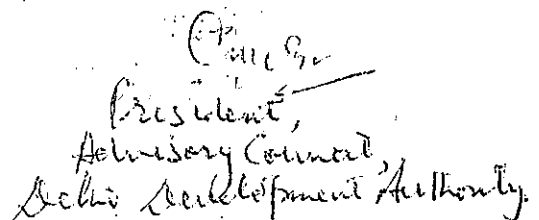 President,
Advisory Council,
Delhi Development Authority.